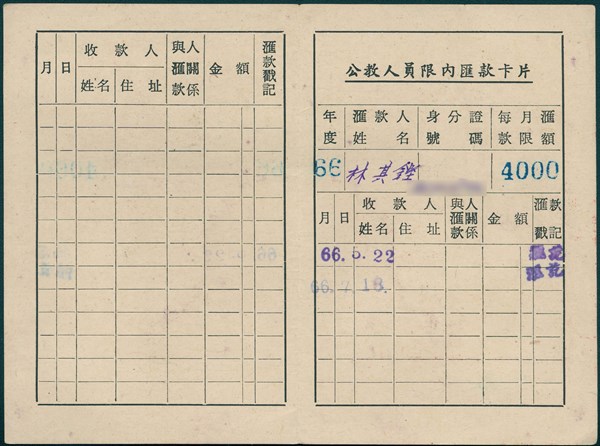 月 日 收款人 與匯款人關係 金額 匯款戳記
姓名 住址
公教人員限內匯款卡片
年度 匯款人姓名 身分證號碼 每月匯款限額
66 林其鏗 4000
月 日 收款人 與匯款人關係 金額 匯款戳記
姓名 住址
66.5.22 匯訖
66.7.18. 匯訖